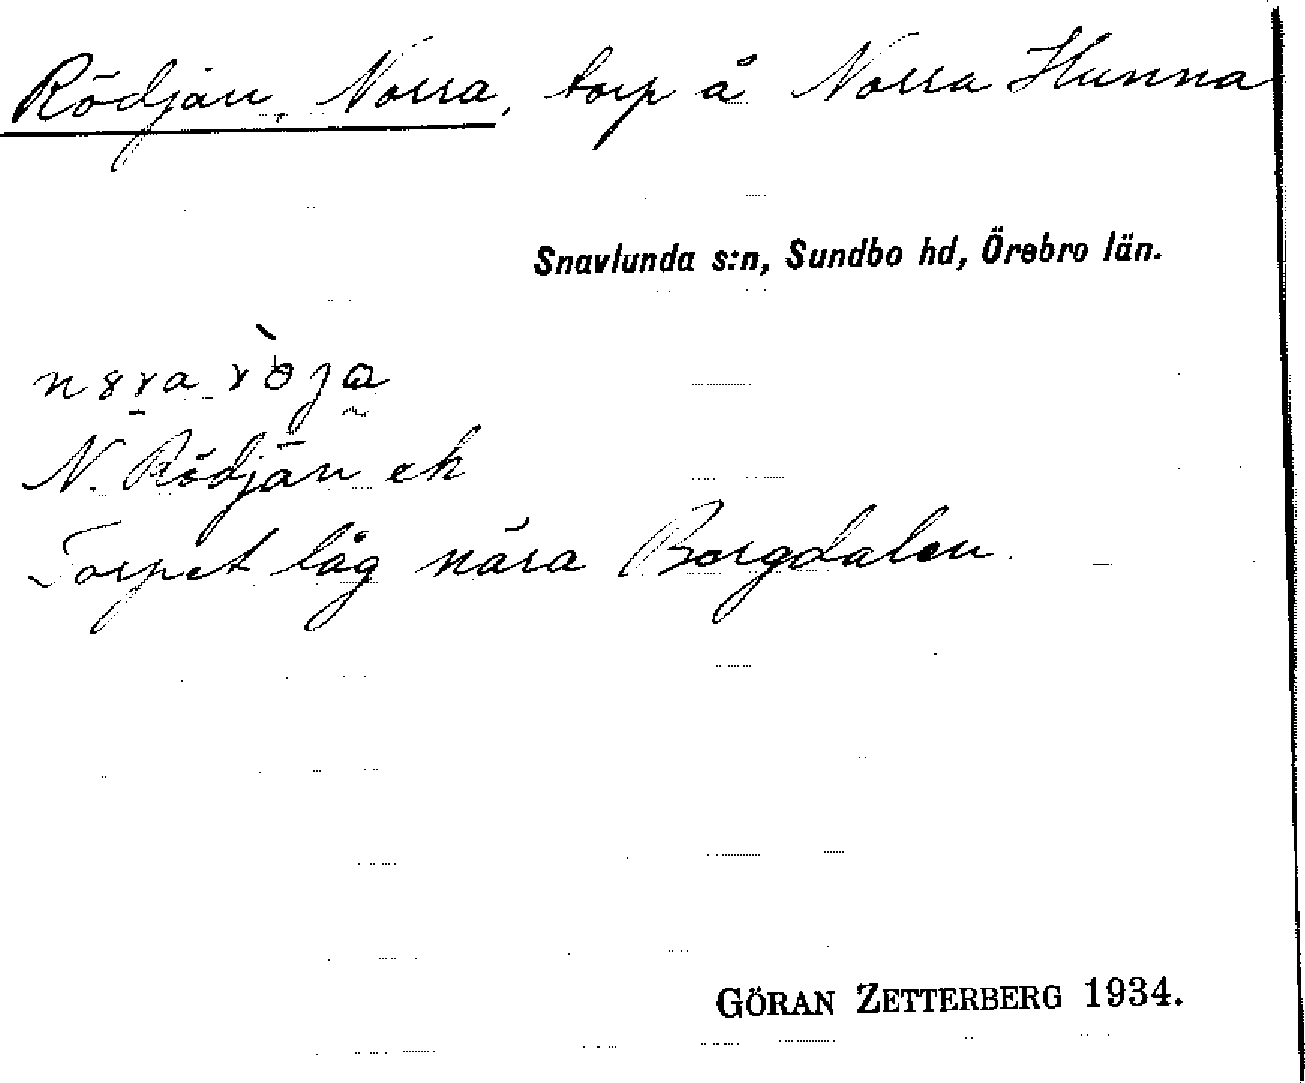 Rödjan, Norra, torp å Norra Hunna
Snavlunda s:n, Sundbo hd, Örebro län.
N. Rödjan ek
Torpet låg nära Borgdalen.
GÖRAN ZETTERBERG 1934.